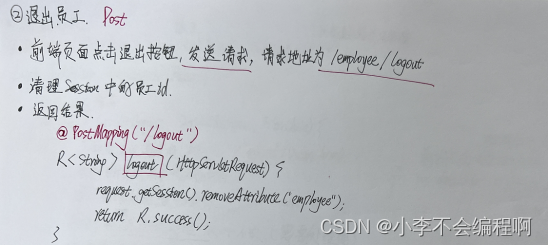 ②退出员工. Post
· 前端页面点击退出按钮, 发送请求, 请求地址为 /employee/logout
· 清理 Session 中的员工id.
· 返回结果.
@PostMapping("/logout")
R<String> logout (HttpServletRequest) {
request.getSession().removeAttribute("employee");
return R.success();
}
CSDN @小李不会编程啊